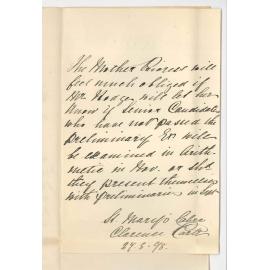 The Mother Prioress will
feel much obliged if
Mr Hodge will let her
know if senior Candidates
who have not passed the
preliminary Ex will
be examined in Arith-
metic in Nov. or shd
they present themselves
with preliminaries in Sept
St Mary's
Clarence Park
29.5.98.